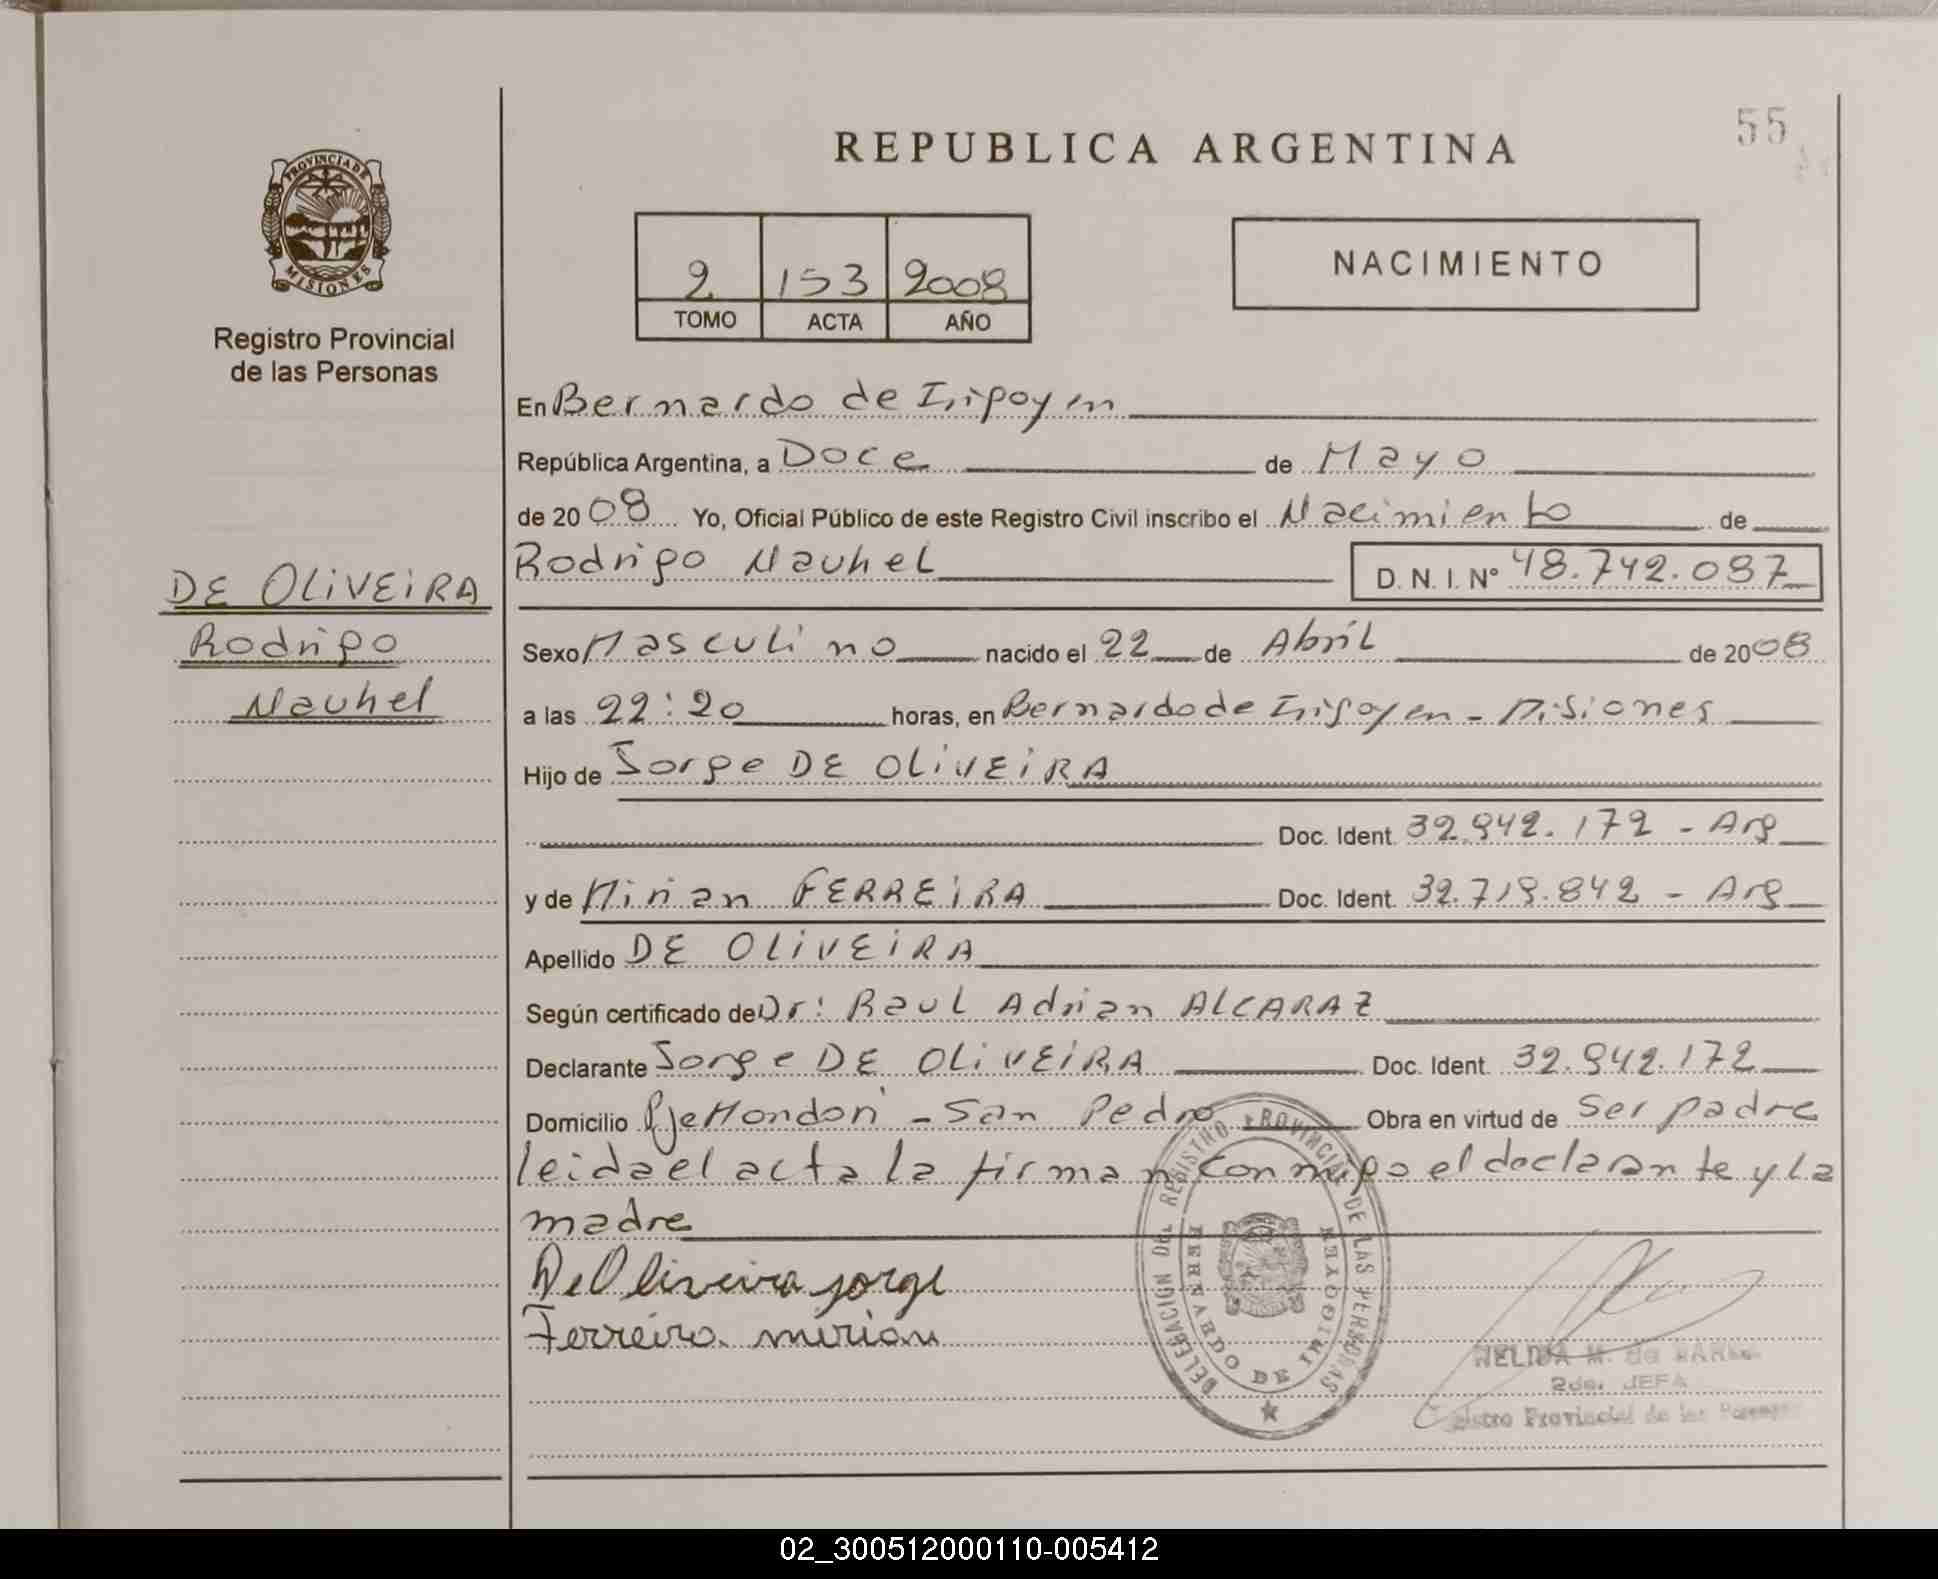 REPUBLICA ARGENTINA
55
PROVINCIA DE
MISIONES
Registro Provincial
de las Personas
2 153 2008
TOMO ACTA AÑO
NACIMIENTO
En Bernardo de Irigoyen
República Argentina, a Doce de Mayo
de 2008 Yo, Oficial Público de este Registro Civil inscribo el Nacimiento de
Rodrigo Nauhel D. N. I. N° 48.742.087
DE OLIVEIRA
Rodrigo
Nauhel
Sexo Masculino nacido el 22 de Abril de 2008
a las 22:20 horas, en Bernardo de Irigoyen - Misiones
Hijo de Jorge DE OLIVEIRA
Doc. Ident. 32.942.172 - Arg
y de Mirian FERREIRA Doc. Ident. 32.719.842 - Arg
Apellido DE OLIVEIRA
Según certificado de Dr: Raul Adrian ALCARAZ
Declarante Jorge DE OLIVEIRA Doc. Ident. 32.942.172
Domicilio Pje Mondori - San Pedro Obra en virtud de Ser padre
leida el acta la firman conmigo el declarante y la
madre
De Oliveira jorge
Ferreira mirian
DELEGACION DEL REGISTRO PROVINCIAL DE LAS PERSONAS
BERNARDO DE IRIGOYEN
NELIDA M. de
2da. JEFA
Registro Provincial de las Personas
02_300512000110-005412